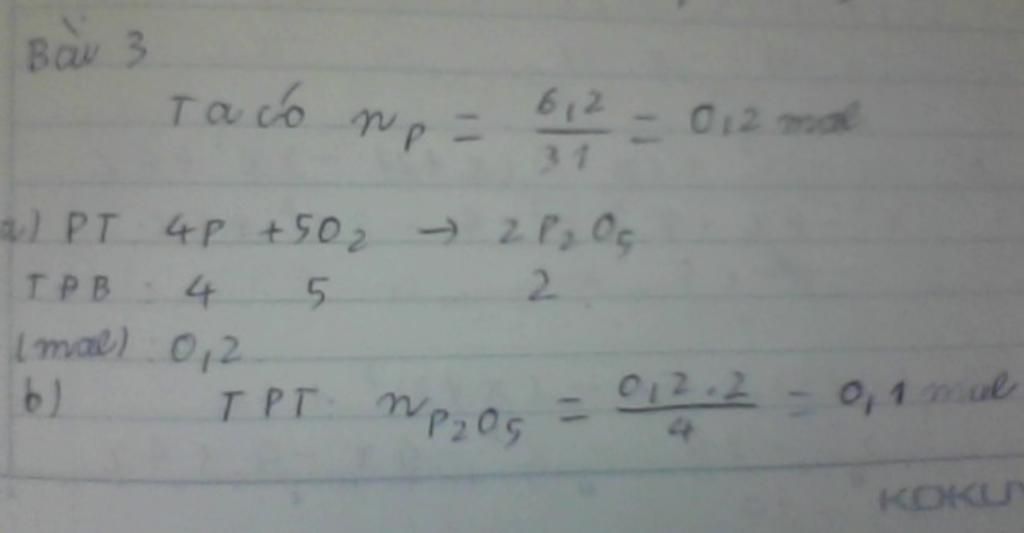 Bài 3
Ta có n_P = 6,2/31 = 0,2 mol
a) PT 4P + 5O₂ → 2P₂O₅
TPB : 4 5 2
(mol) 0,2
b) TPT: n_P₂O₅ = 0,2.2/4 = 0,1 mol
KOKUY